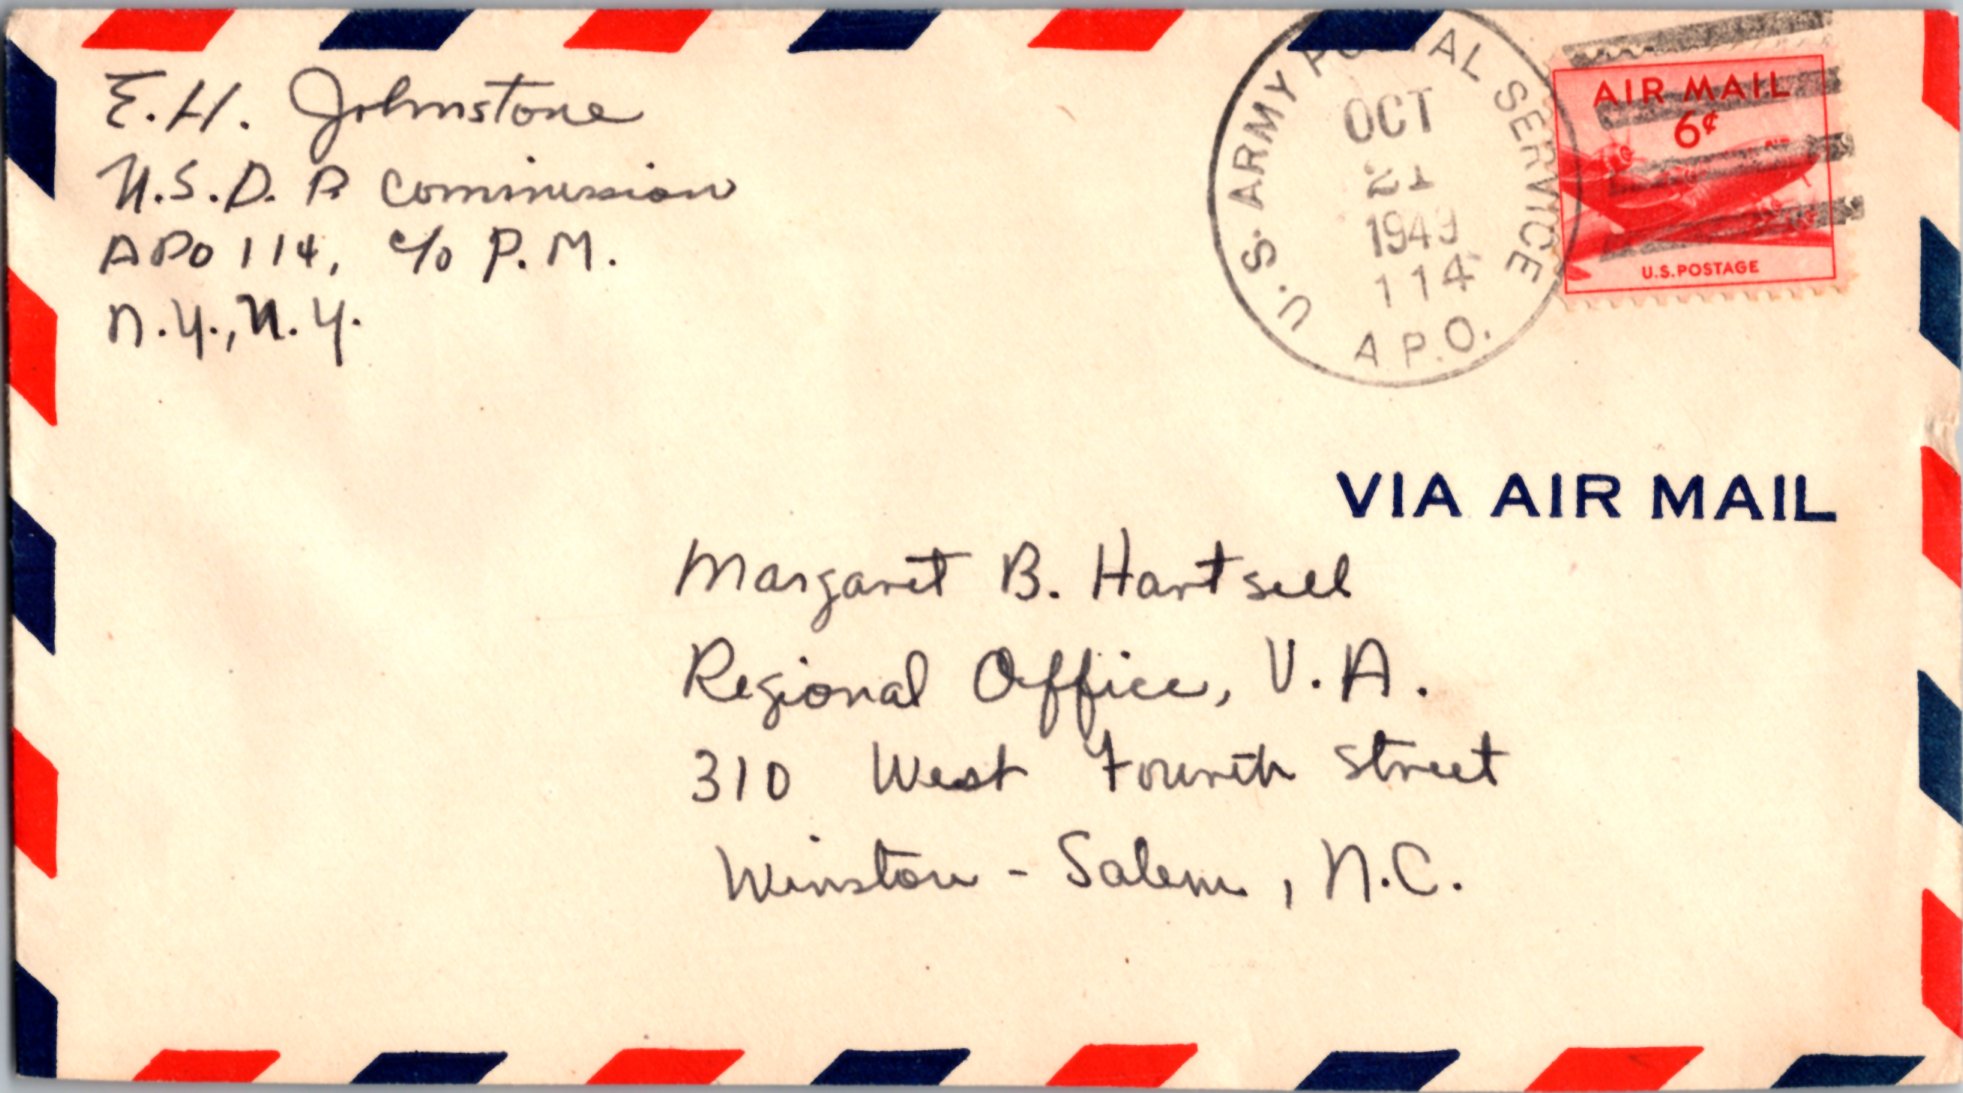 E. H. Johnstone
U.S.D.P. Commission
APO 114, c/o P.M.
N.Y., N.Y.
U.S. ARMY POSTAL SERVICE
OCT
21
1949
114
A.P.O.
AIR MAIL
6¢
U.S. POSTAGE
VIA AIR MAIL
Margaret B. Hartsell
Regional Office, V.A.
310 West Fourth Street
Winston-Salem, N.C.